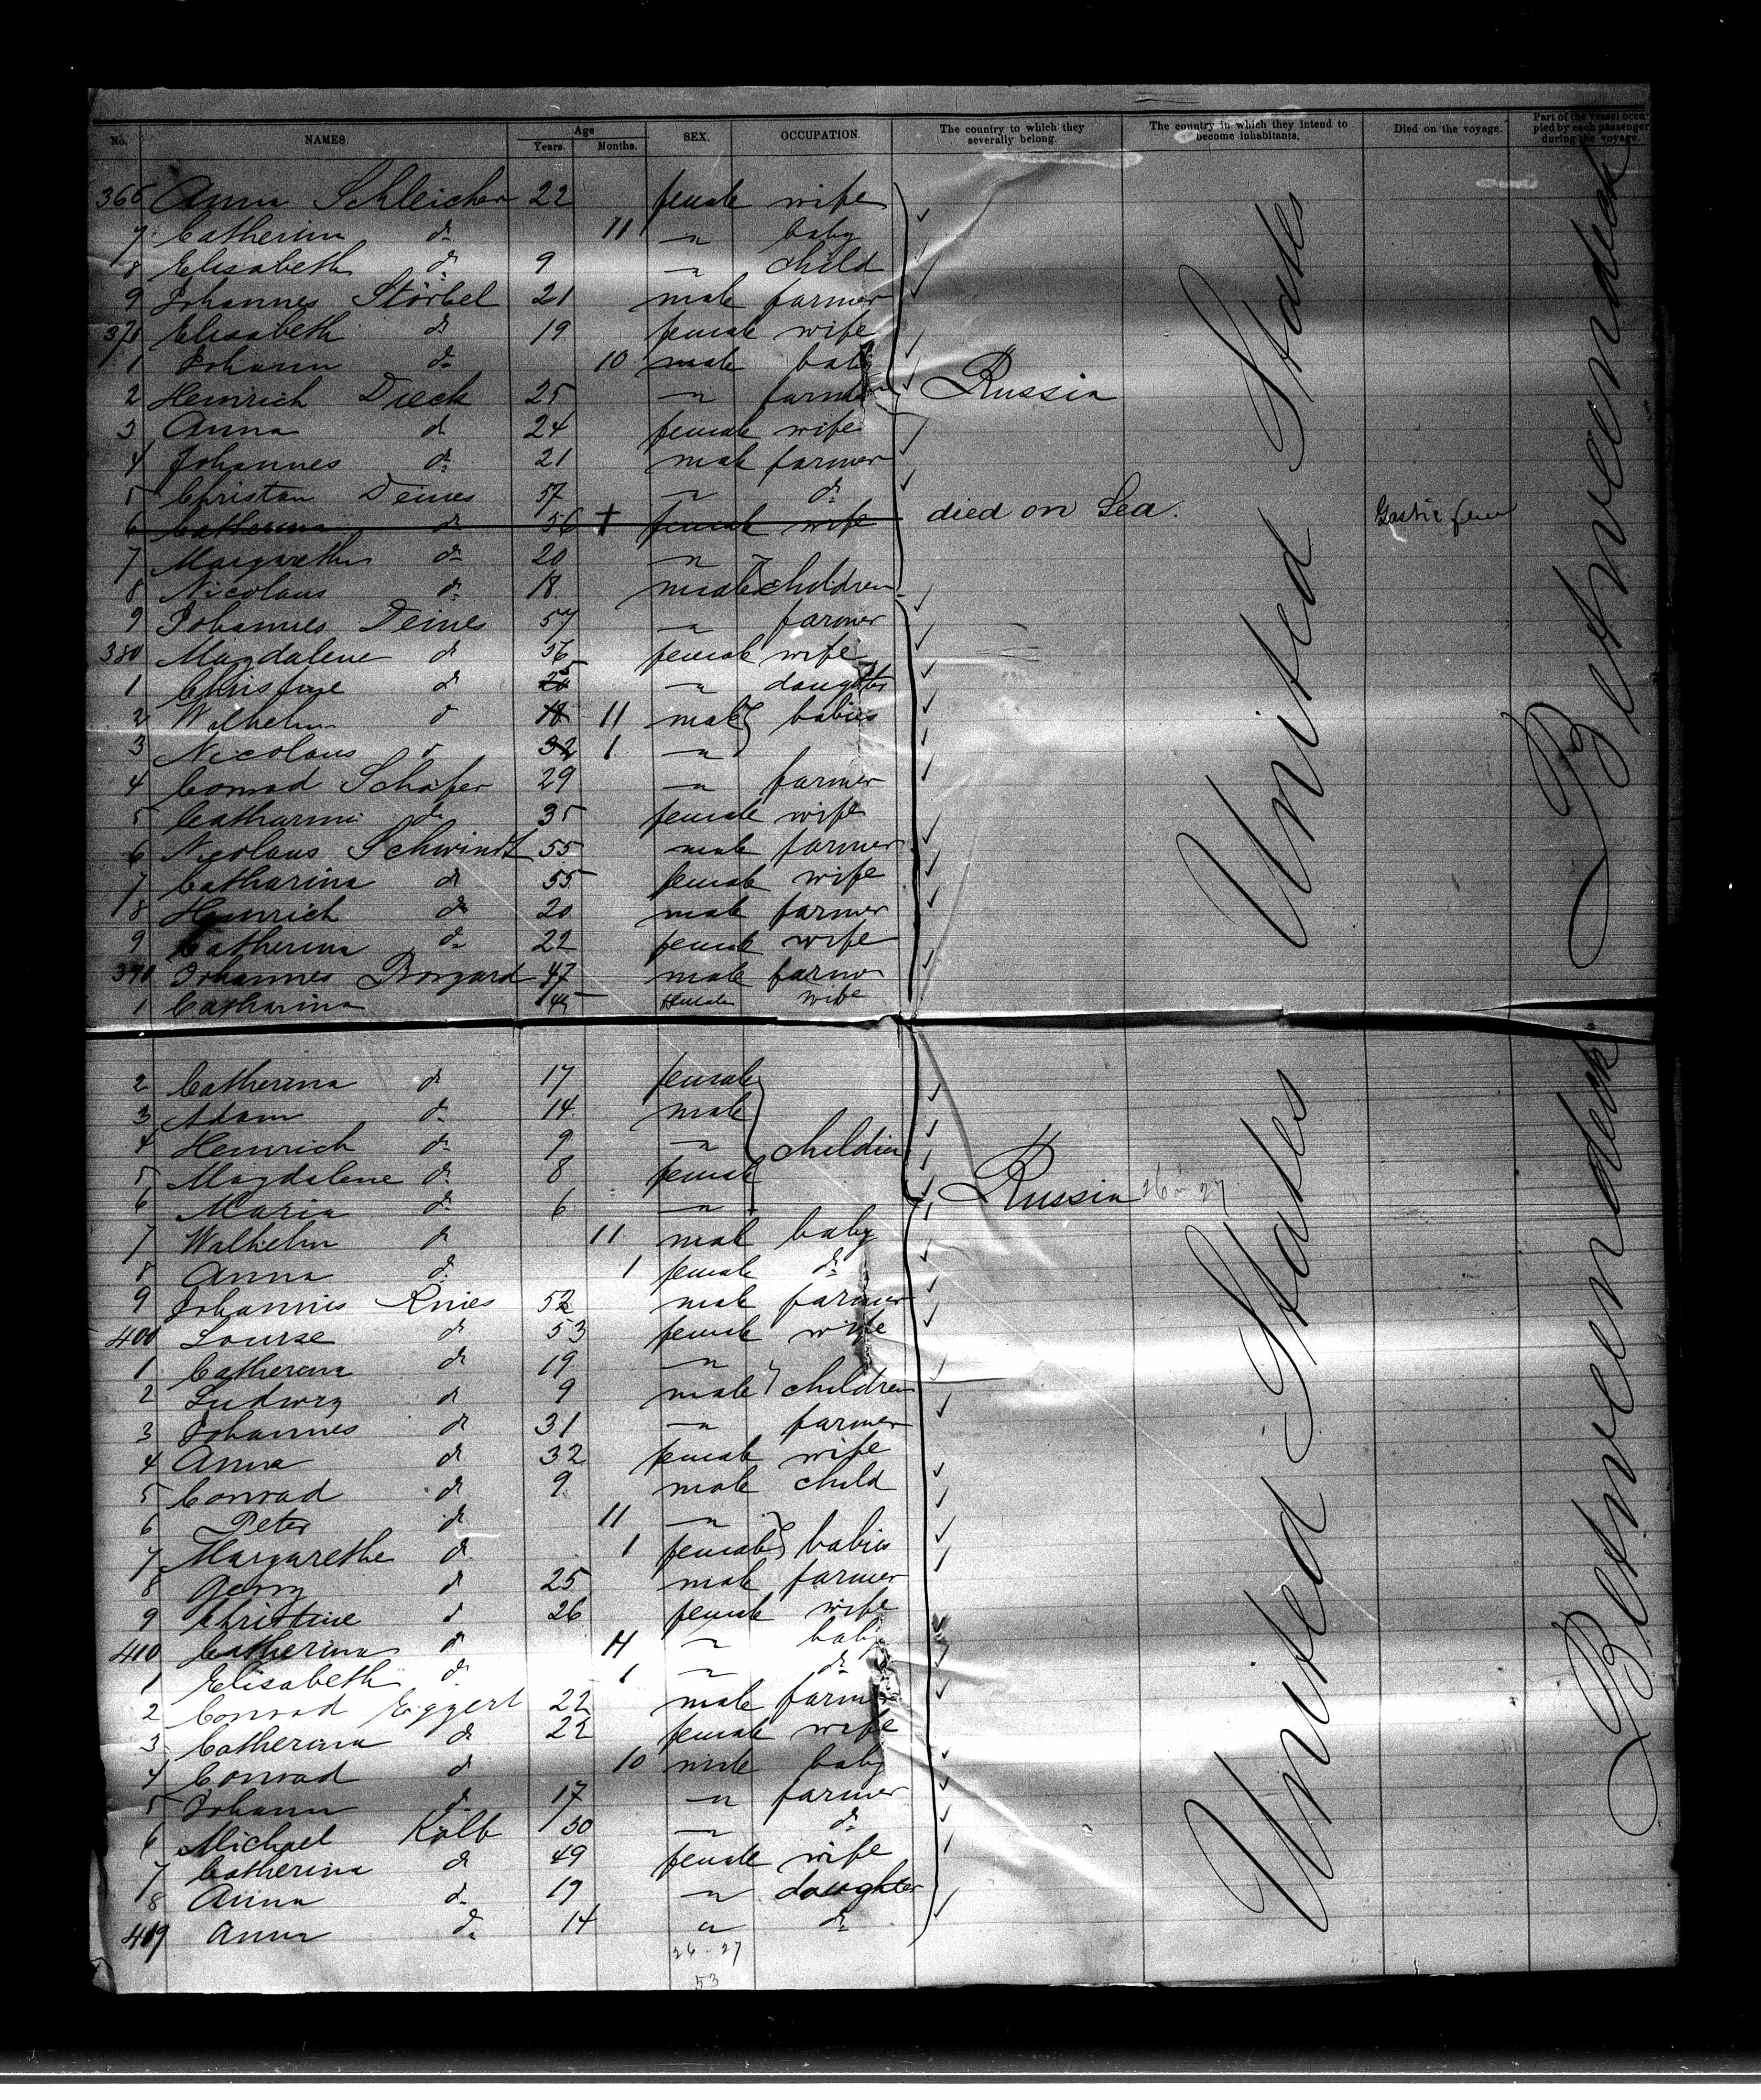 No. NAMES. Age Years. Months. SEX. OCCUPATION. The country to which they severally belong. The country in which they intend to become inhabitants. Died on the voyage. Part of the vessel occupied by each passenger during the voyage.
366 Anna Schleicher 22 female wife
7 Catherina do 11 " baby
8 Elisabeth do 9 " child
9 Johannes Störbel 21 male farmer
370 Elisabeth do 19 female wife
1 Johann do 10 male baby
2 Heinrich Dieck 25 " farmer Russia
3 Anna do 24 female wife
4 Johannes do 21 male farmer
5 Christian Deines 57 " do
6 Catherina do 56 † female wife died on Sea. Gastric fever
7 Margaretha do 20 "
8 Nicolaus do 18 male children
9 Johannes Deines 57 " farmer
380 Magdalene do 56 female wife
1 Christine do 25 " daughter
2 Wilhelm do 11 male babies
3 Nicolaus do 1 "
4 Conrad Schäfer 29 " farmer
5 Catharine do 35 female wife
6 Nicolaus Schwindt 55 male farmer
7 Catharina do 55 female wife
8 Heinrich do 20 male farmer
9 Catherina do 22 female wife
390 Johannes Borgard 47 male farmer
1 Catharina 45 female wife
United States
Between deck
2 Catherina do 17 female
3 Adam do 14 male
4 Heinrich do 9 " children
5 Magdalene do 8 female
6 Maria do 6 " Russia 26 - 27
7 Wilhelm do 11 male baby
8 Anna do 1 female do
9 Johannes Knies 52 male farmer
400 Lourse do 53 female wife
1 Catherina do 19 "
2 Ludwig do 9 male children
3 Johannes do 31 " farmer
4 Anna do 32 female wife
5 Conrad do 9 male child
6 Peter do 11 "
7 Margarethe do 1 female babies
8 Georg do 25 male farmer
9 Christine do 26 female wife
410 Catherina do 11 " baby
1 Elisabeth do 1 " do
2 Conrad Eiggert 22 male farmer
3 Catherina do 22 female wife
4 Conrad do 10 male baby
5 Johann do 17 " farmer
6 Michael Kolb 50 " do
7 Catherina do 49 female wife
8 Anna do 19 " daughter
419 Anna do 14 " do
26 - 27
53
United States
Between deck